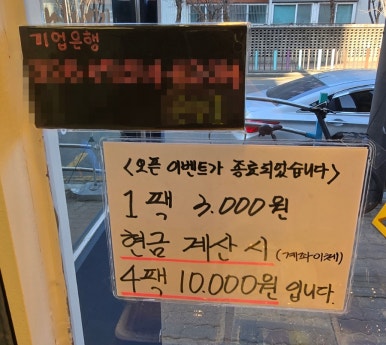 기업은행
<오픈 이벤트가 종료되었습니다>
1팩 3.000원
현금 계산 시 (계좌이체)
4팩 10.000원 입니다.